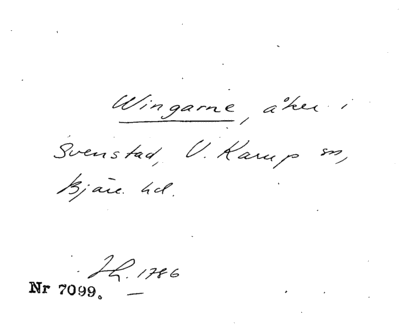 Wingarne, åker i
Svenstad, V. Karup sn,
Bjäre hd.
Jh. 1786
Nr 7099.